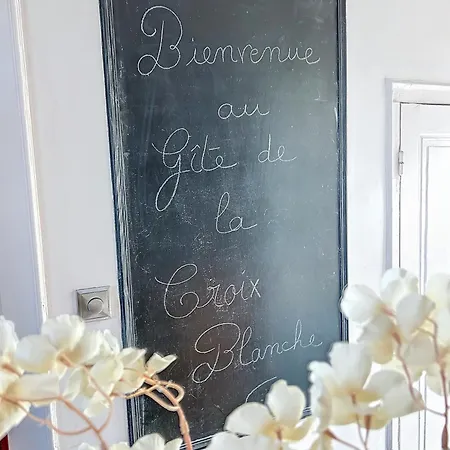 Bienvenue
au
Gîte de
la
Croix
Blanche